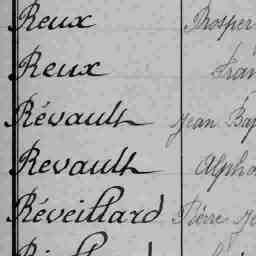 Reux Prosper
Reux Fran
Révault Jean Bap
Revault Alpho
Réveillard Pierre Je